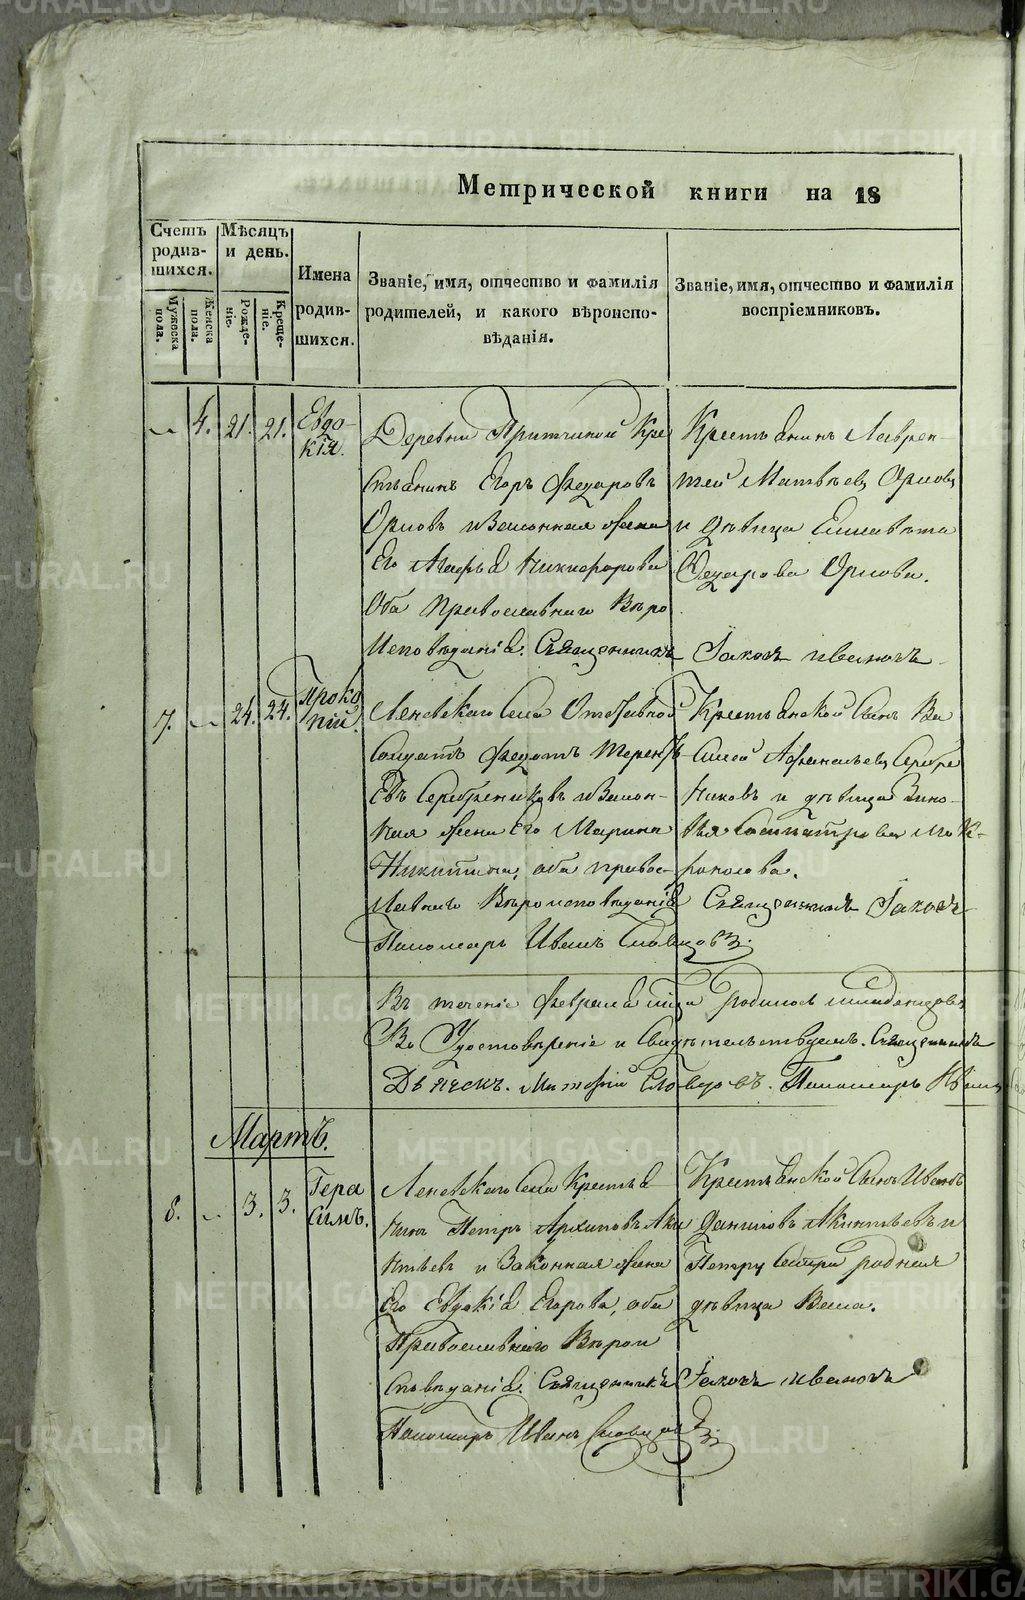 Метрической книги на 18
Счетъ родив-шихся.
Мужеска пола.
Женска пола.
Мѣсяцъ и день.
Рожде-ніе.
Креще-ніе.
Имена родив-шихся.
Званіе, имя, отчество и фамилія родителей, и какого вѣроиспо-вѣданія.
Званіе, имя, отчество и фамилія воспріемниковъ.
4. 21. 21. Евдо-
кія.
Деревни Кре
стьянинъ Егоръ Федаровъ
Орловъ изаконная жена
Его Агафья Никифорова
Оба православнаго Вѣро
Исповѣданія. Священникъ
Крестьянинъ Лаврен-
тей Матвѣевъ Орловъ
и дѣвица Елисавѣта
Федарова Орлова.
Іаковъ Ивановъ
7. 24. 24. Проко
пій.
Леневскаго Села Отставной
Солдатъ Федотъ Терентъ
Евъ Серебрениковъ изакон-
ная жена Его Марина
Никитина, оба правос-
лавнаго Вѣроисповѣданія
Пономарь Иванъ Словцовъ.
Крестьянской Сынъ Ва
силей Афанасьевъ Серебре
никовъ и дѣвица
Священникъ Іаковъ
Въ теченіе Февраля мца родилось младенцовъ
Во Удостовѣреніе и Свидѣтельствуемъ. Священникъ
Пономарь Иванъ
Мартъ.
8. 3. 3. Гера
симъ.
Леневскаго Села Крестья
нинъ Петръ Архиповъ Аки
нтьевъ и Законная жена
Его Евдокія Егорова, оба
Православнаго Вѣрои
сповѣданія. Священникъ
Пономарь Иванъ Словцовъ
Крестьянской Сынъ Иванъ
Даниловъ Акинтьевъ и
Петру Сестра родная
дѣвица
Іаковъ Ивановъ
METRIKI.GASO-URAL.RU